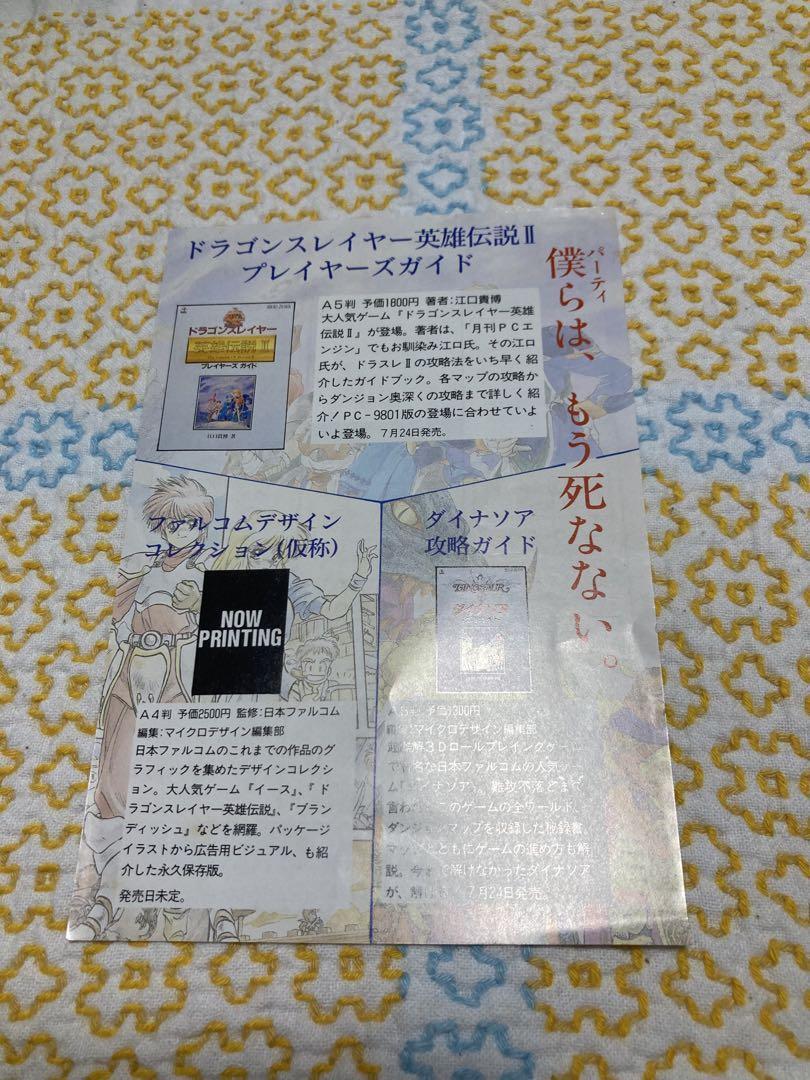 ドラゴンスレイヤー英雄伝説Ⅱ
プレイヤーズガイド
パーティ
僕らは、もう死なない。
ドラゴンスレイヤー
英雄伝説Ⅱ
プレイヤーズ ガイド
江口貴博 著
A5判 予価1800円 著者:江口貴博
大人気ゲーム『ドラゴンスレイヤー英雄
伝説Ⅱ』が登場。著者は、「月刊PCエ
ンジン」でもお馴染み江口氏。その江口
氏が、ドラスレⅡの攻略法をいち早く紹
介したガイドブック。各マップの攻略か
らダンジョン奥深くの攻略まで詳しく紹
介!PC-9801版の登場に合わせていよ
いよ登場。7月24日発売。
ファルコムデザイン
コレクション(仮称)
NOW
PRINTING
A4判 予価2500円 監修:日本ファルコム
編集:マイクロデザイン編集部
日本ファルコムのこれまでの作品のグ
ラフィックを集めたデザインコレクシ
ョン。大人気ゲーム『イース』、『ド
ラゴンスレイヤー英雄伝説』、『ブラン
ディッシュ』などを網羅。パッケージ
イラストから広告用ビジュアル、も紹
介した永久保存版。
発売日未定。
ダイナソア
攻略ガイド
DINOSAUR
ダイナソア
予価1300円
編集:マイクロデザイン編集部
3Dロールプレイングゲー
で有名な日本ファルコムの人気ゲー
ム『ダイナソア』。難攻不落とまで
言われたこのゲームの全ワールド、
ダンジョンマップを収録した秘録書。
マップとともにゲームの進め方も解
説。今まで解けなかったダイナソア
が、解ける 7月24日発売。